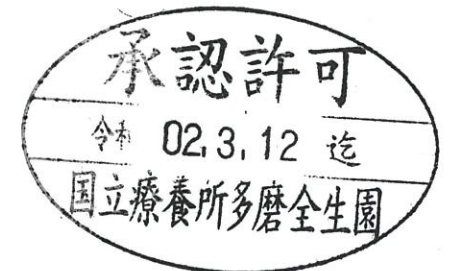 承認許可
令和 02.3.12 迄
国立療養所多磨全生園